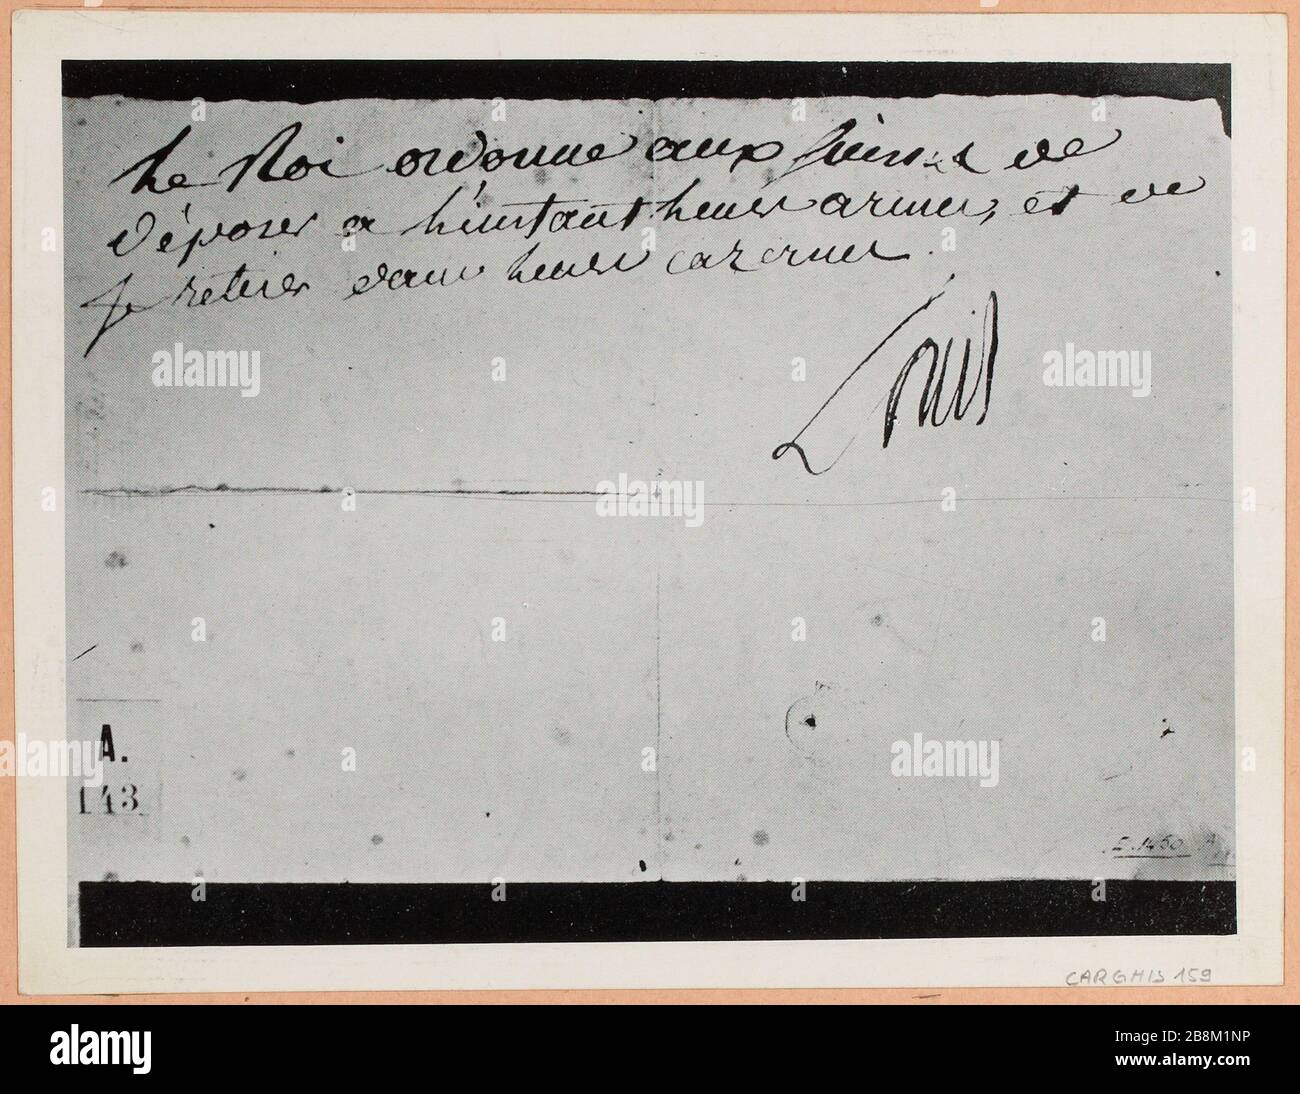 Le Roi ordonne aux Suisses de
déposer a l'instant leurs armes, et de
se retirer dans leurs cazernes.
Louis
A.
143
E. 1450 A
CARGHIS 159
alamy
Image ID: 2B8M1NP
www.alamy.com